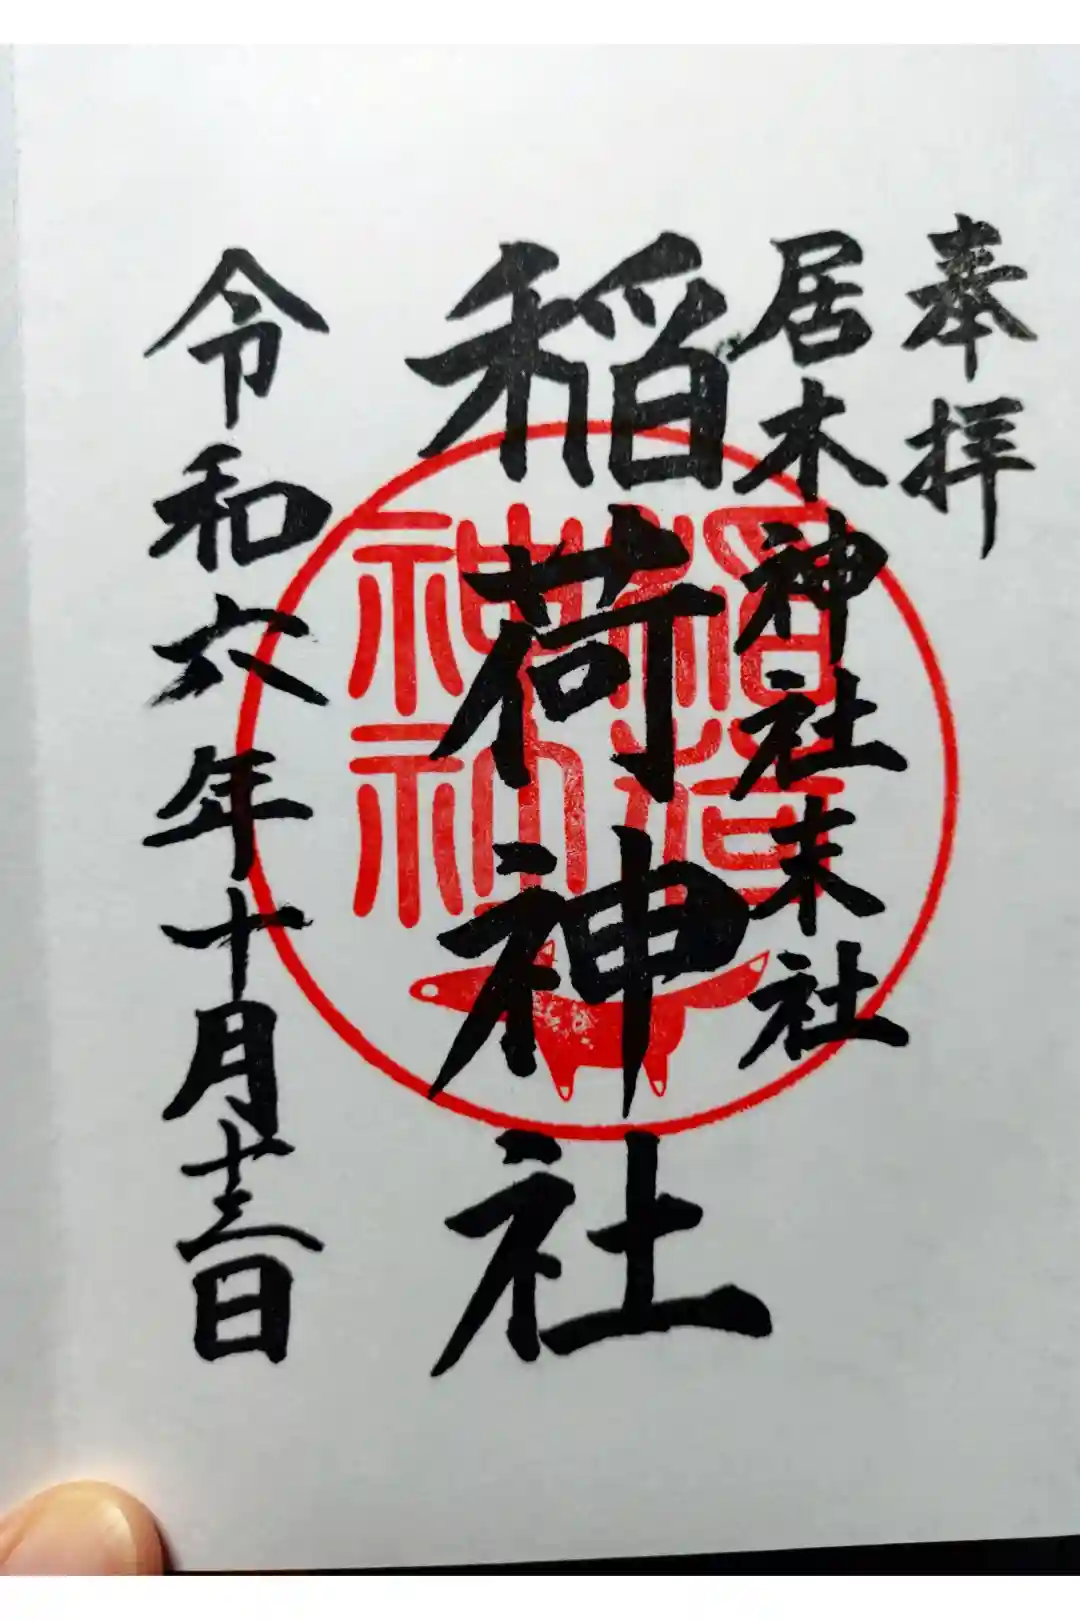 奉拝
居木神社末社
稲荷神社
令和六年十月十三日